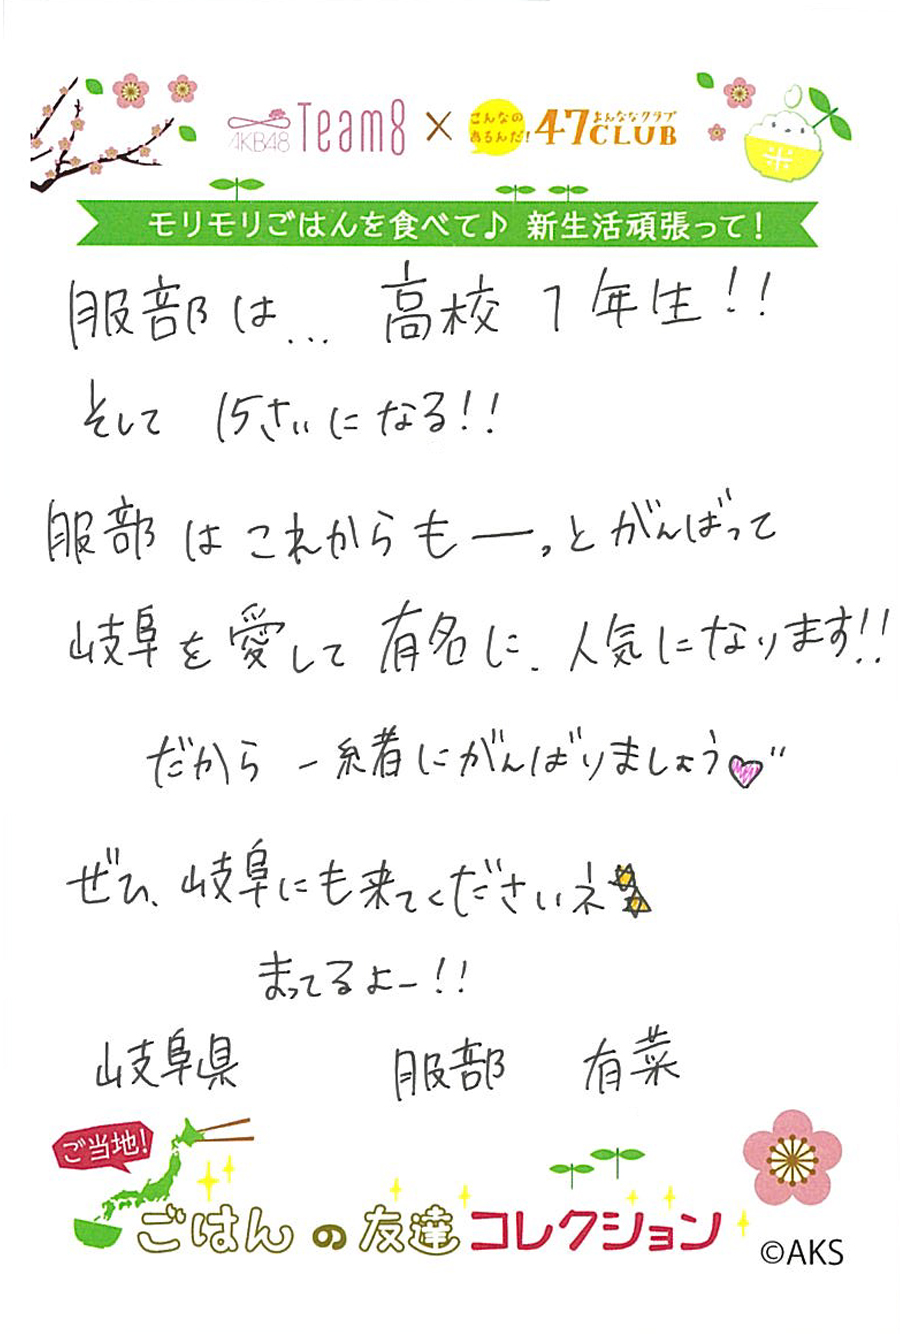 AKB48 Team8 × こんなのあるんだ! 47CLUB よんななクラブ
モリモリごはんを食べて♪ 新生活頑張って!
服部は... 高校1年生!!
そして 15さいになる!!
服部はこれからもーっとがんばって
岐阜を愛して有名に、人気になります!!
だから 一緒にがんばりましょう
ぜひ、岐阜にも来てくださいネ
まってるよー!!
岐阜県 服部 有菜
ご当地!
ごはんの友達コレクション
©AKS